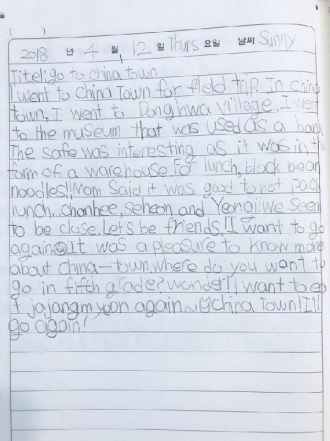 ( )
2018 년 4 월 12 일 Thurs 요일 날씨 Sunny
Titel: go to china town
I went to China Town for field trip. In China
town, I went to Donghwa village, I went
to the museum that was used as a bank
The safe was interesting as it was in the
form of a warehouse. For lunch, black bean
noodles!! Mom said it was good to not pack
lunch.. chanhee, seheon, and Yeongi! We seem
to be close. Let's be friends! I want to go
again It was a pleasure to know more
about china-town, where do you want to
go in fifth grade? wonder! I want to ea
t jajangmyeon again~ China Town! I'll
go again!